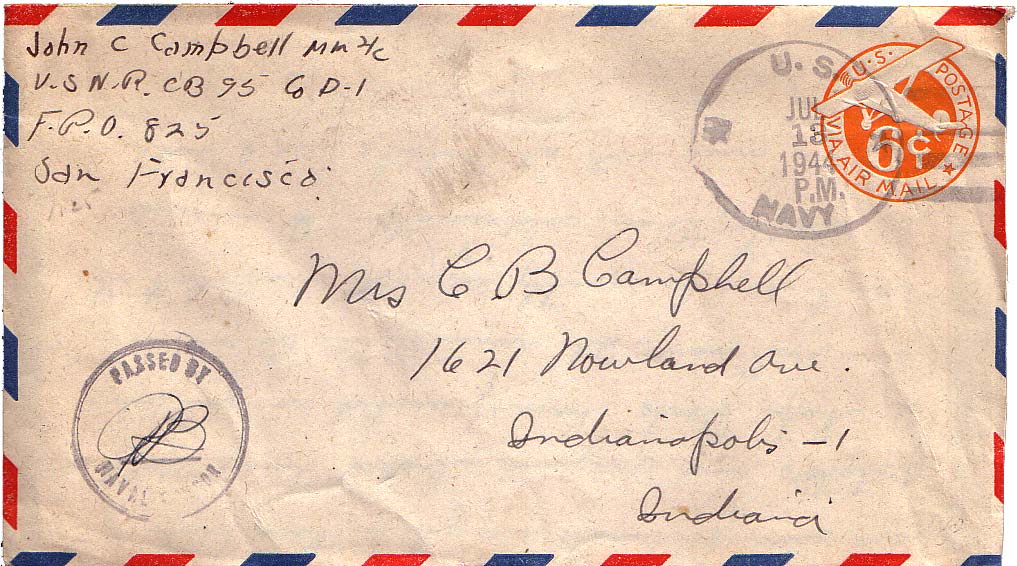 John C Campbell MM 2/c
U.S.N.R. CB 95 Co D-1
F.P.O. 825
San Francisco
U.S.
JUL
13
1944
P.M.
NAVY
U.S. POSTAGE
6¢
VIA AIR MAIL
Mrs C B Campbell
1621 Nowland Ave.
Indianapolis - 1
Indiana
PASSED BY
NAVAL